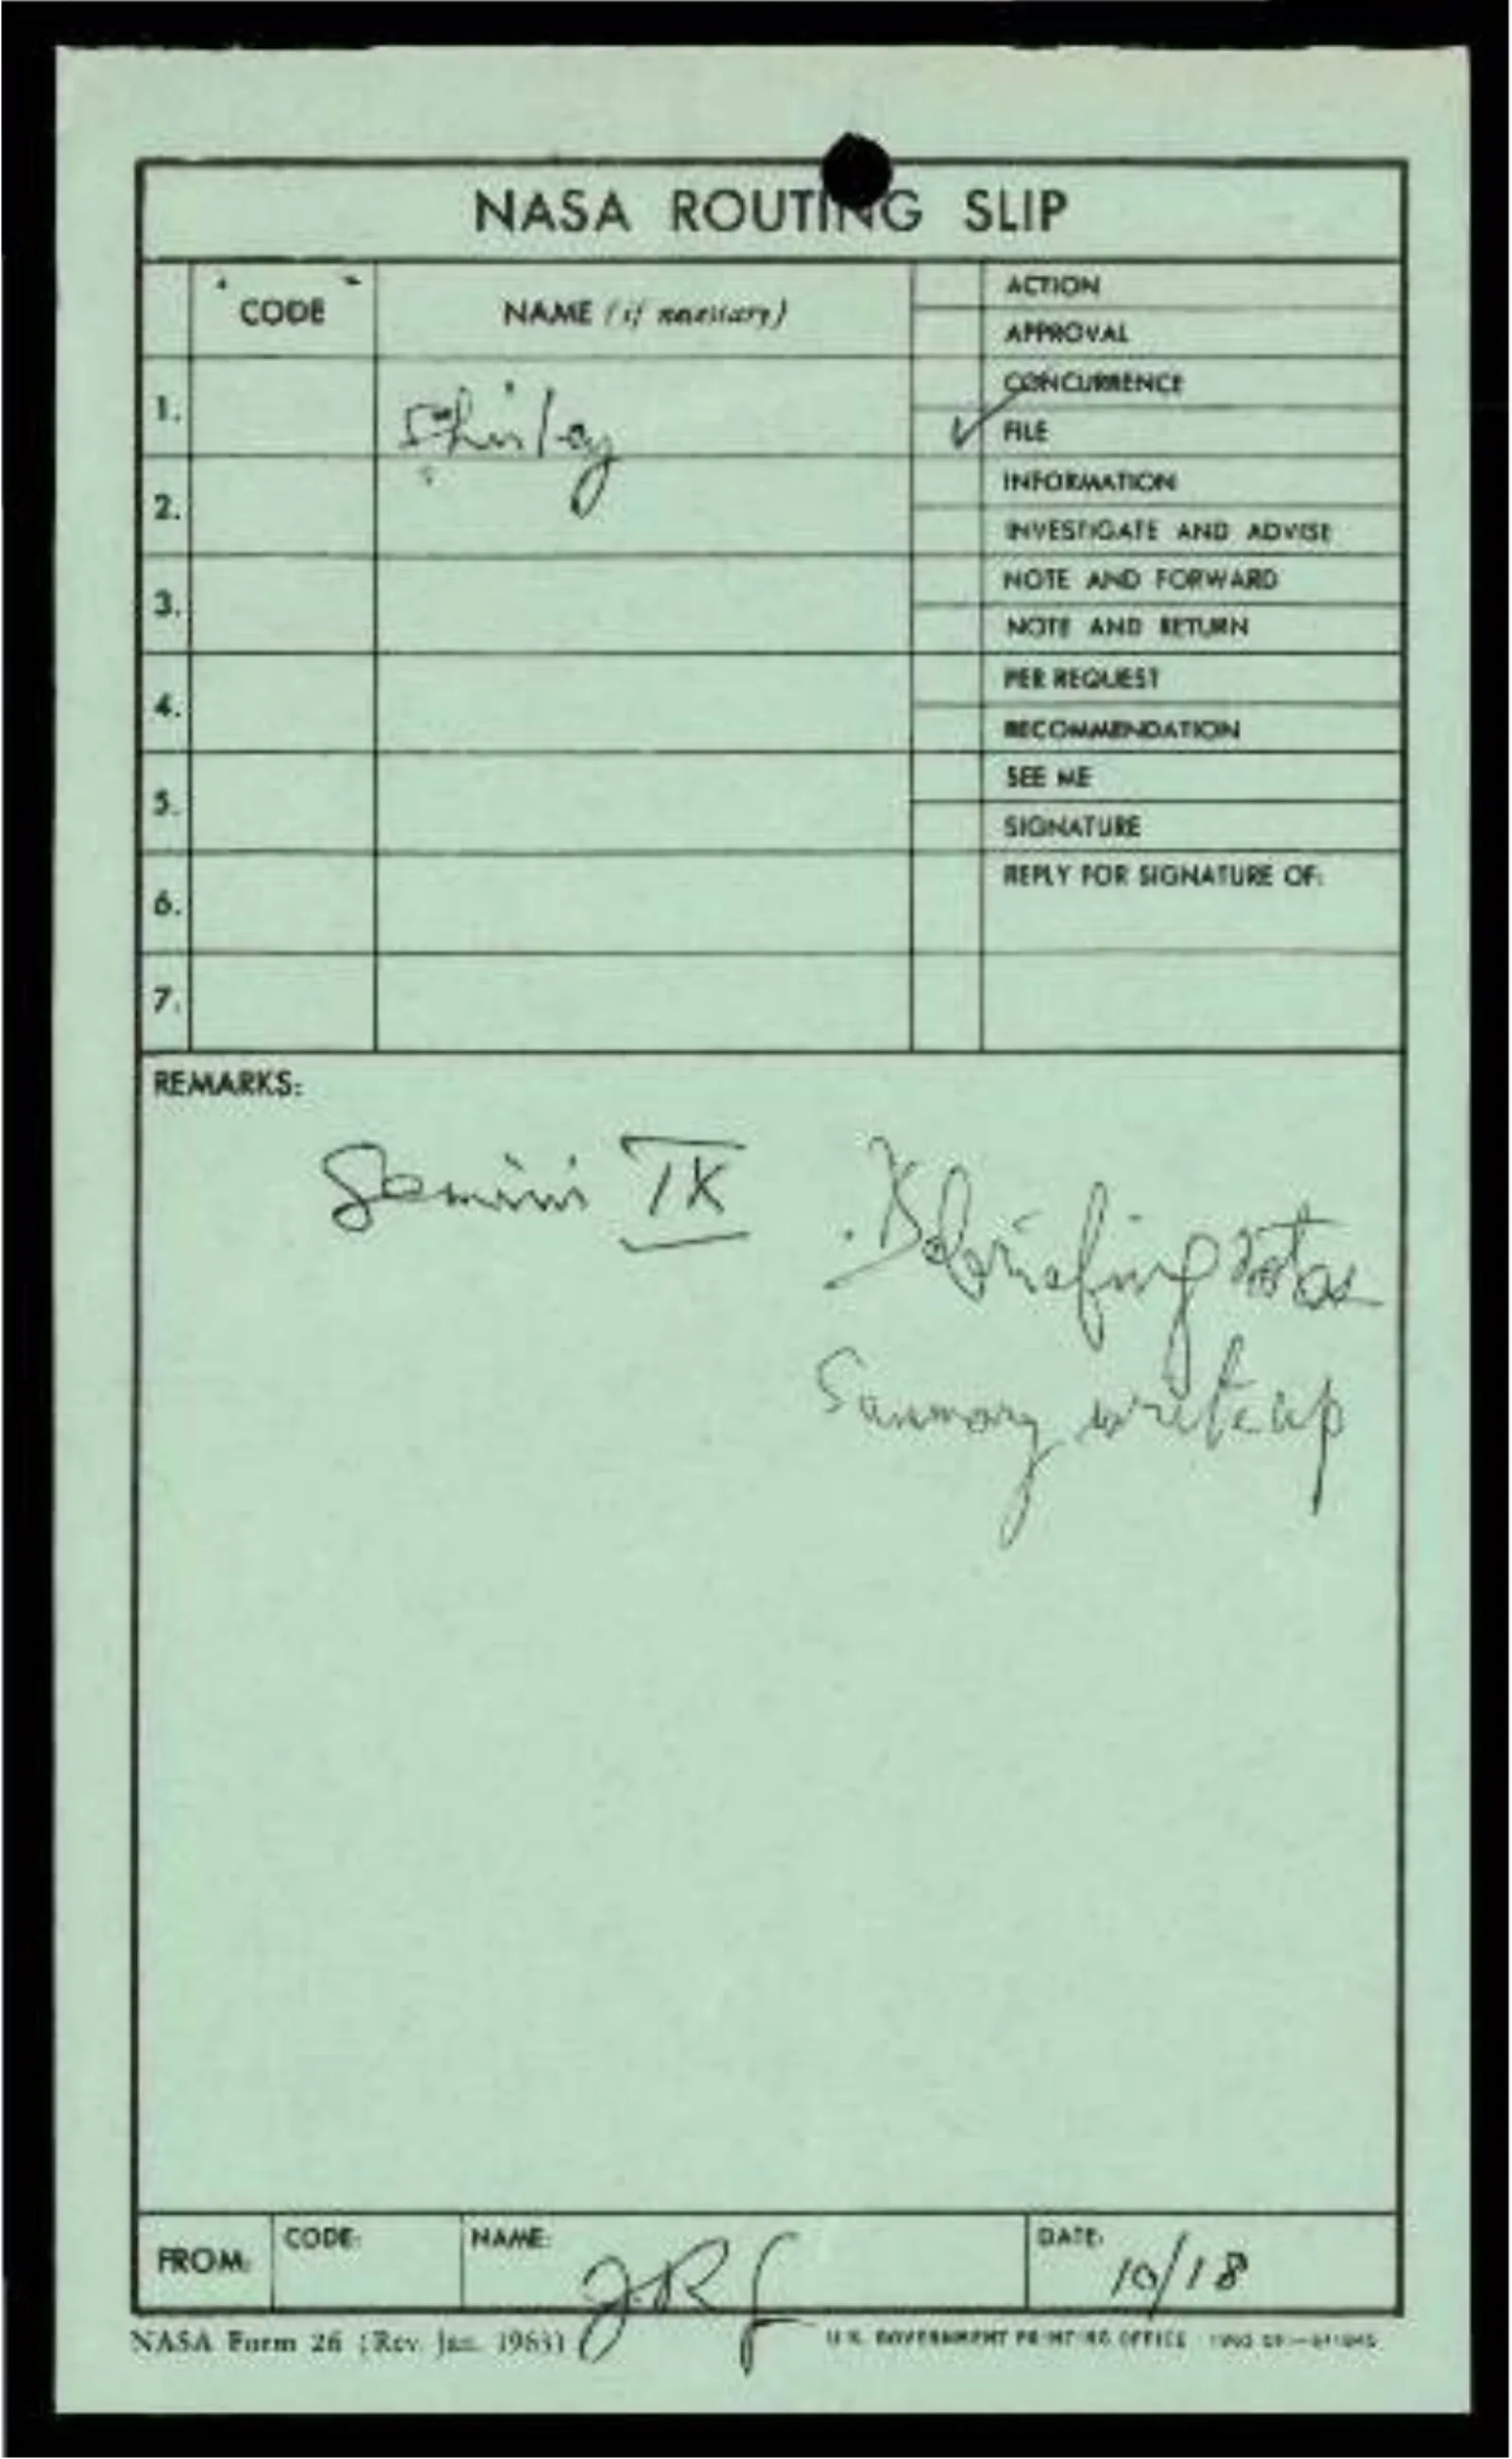 NASA ROUTING SLIP
CODE
NAME (if necessary)
ACTION
APPROVAL
CONCURRENCE
1.
Shirley
✓ FILE
INFORMATION
2.
INVESTIGATE AND ADVISE
NOTE AND FORWARD
3.
NOTE AND RETURN
PER REQUEST
4.
RECOMMENDATION
SEE ME
5.
SIGNATURE
REPLY FOR SIGNATURE OF:
6.
7.
REMARKS:
Gemini IX Debriefing notes
Summary write up
FROM:
CODE:
NAME:
DATE:
10/18
NASA Form 26 (Rev. Jan. 1963)
U.S. GOVERNMENT PRINTING OFFICE